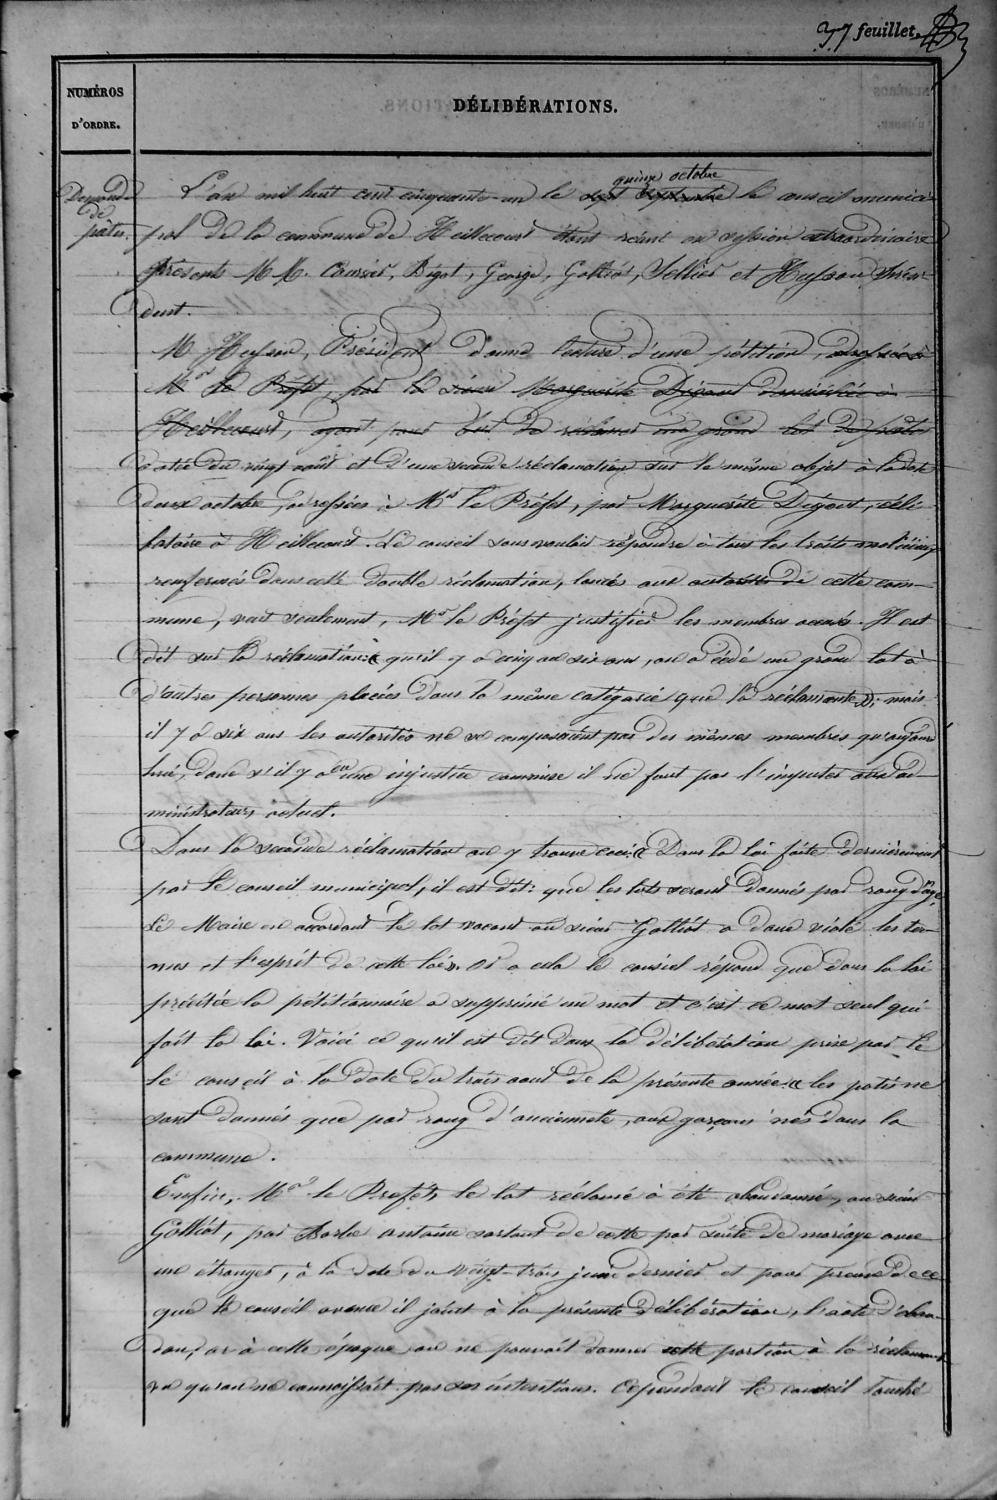 37 feuillet.
NUMÉROS
D'ORDRE.
DÉLIBÉRATIONS.
Demande
de
pâtis.
quinze octobre
L'an mil huit cent cinquante-un le sept septembre le conseil munici-
pal de la commune de Heillecourt étant réuni en session extraordinaire
Présents M.M. Coursier, Bigot, George, Galliot, Sellier et Husson Présir-
dent.
M Husson, Président donne lecture d'une pétition, adressée à
Mr le Préfet, par la sieur Marguerite Digout domiciliée à
Heillecourt, ayant pour but de réclamer un grand lot de pâtis
datée du vingt août et d'une seconde réclamation sur le même objet à la date
deux octobre, adressées à Mr le Préfet, par Marguerite Digout, céli-
bataire à Heillecourt. Le conseil sans vouloir répondre à tous les traits malicieux
renfermés dans cette double réclamation, lancés aux autorités de cette com-
mune, veut seulement, Mr le Préfet justifier les membres accusés. Il est
dit sur la réclamation: « qu'il y a cinq ou six ans, on a cédé un grand lot à
d'autres personnes placées dans la même catégorie que la réclamante »; mais
il y a six ans les autorités ne se composaient pas des mêmes membres qu'aujourd'
hui, donc s'il y a eu une injustice commise il ne faut pas l'imputer aux ad-
ministrateurs actuel.
Dans la seconde réclamation on y trouve ceci: « Dans la loi faite dernièrement
par le conseil municipal, il est dit: que les lots seront donnés par rang d'âge,
Le Maire en accordant le lot vacant au sieur Galliot a donc violé les ter-
mes et l'esprit de cette loi ». Or a cela le conseil répond que dans la loi
précitée la pétitionnaire a supprimé un mot et c'est ce mot seul qui
fait la loi. Voici ce qu'il est dit dans la délibération prise par le
le conseil à la date du trois août de la présente année « les patis ne
sont donnés que par rang d'ancienneté, aux garçons nés dans la
commune.
Enfin, Mr le Préfet, le lot réclamé à été abandonné, au sieur
Galliot, par Barbe Antoine sortant de cette par suite de mariage avec
un étranger, à la date du vingt-trois juin dernier et pour preuve de ce
que le conseil avance il joint à la présente délibération, l'acte d'aban-
don, or à cette époque on ne pouvait donner cette portion à la réclamante
vu qu'on ne connaissait pas ses intentions. Cependant le conseil touché